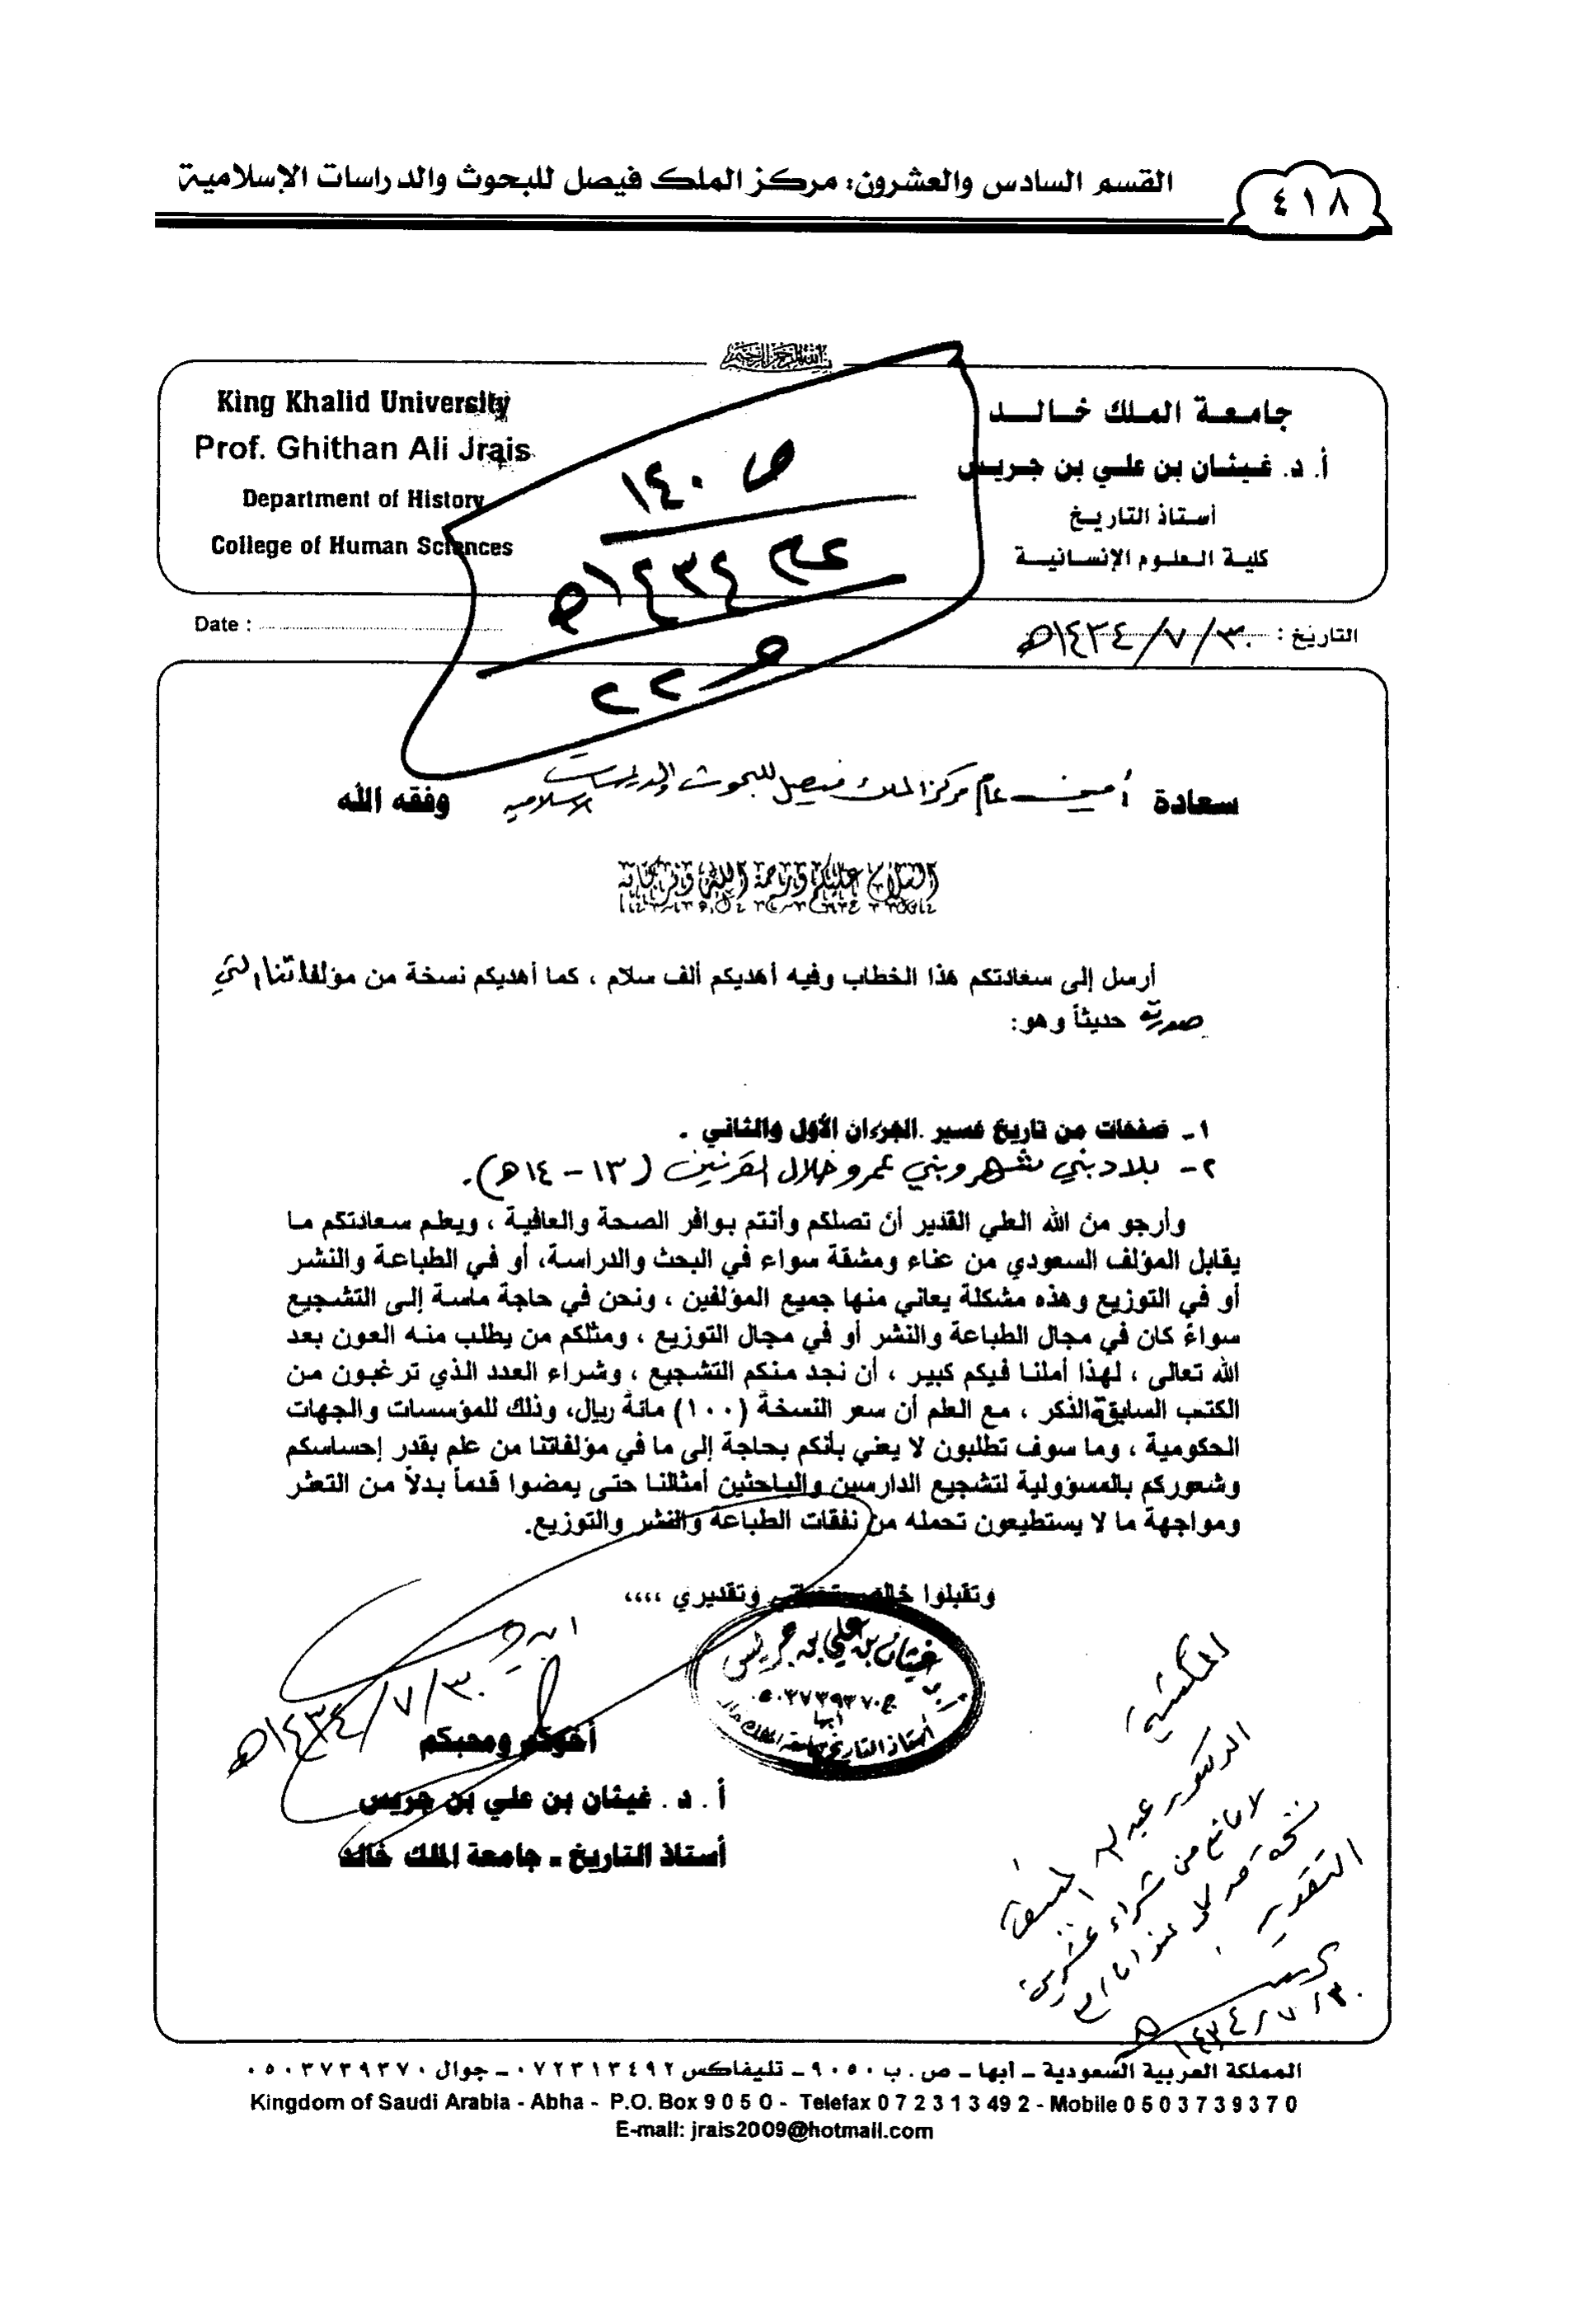 القسم السادس والعشرون: مركز الملك فيصل للبحوث والدراسات الإسلامية
٤١٨
King Khalid University
Prof. Ghithan Ali Jrais
Department of History
College of Human Sciences
جامعة الملك خالد
أ. د. غيثان بن علي بن جريس
أستاذ التاريخ
كلية العلوم الإنسانية
ص ١٤٠
عام ١٤٣٤هـ
حـ ٢٢
Date :
التاريخ : ٣٠/٧/١٤٣٤هـ
سعادة أمين عام مركز الملك فيصل للبحوث والدراسات الإسلامية وفقه الله
السلام عليكم ورحمة الله وبركاته
أرسل إلى سعادتكم هذا الخطاب وفيه أهديكم ألف سلام ، كما أهديكم نسخة من مؤلفاتنا التي
صدرت حديثاً وهو:
١- صفحات من تاريخ عسير .الجزءان الأول والثاني .
٢- بلاد بني شهر وبني عمرو خلال القرنين (١٣-١٤هـ).
وأرجو من الله العلي القدير أن تصلكم وأنتم بوافر الصحة والعافية ، ويعلم سعادتكم ما
يقابل المؤلف السعودي من عناء ومشقة سواء في البحث والدراسة، أو في الطباعة والنشر
أو في التوزيع وهذه مشكلة يعاني منها جميع المؤلفين ، ونحن في حاجة ماسة إلى التشجيع
سواءً كان في مجال الطباعة والنشر أو في مجال التوزيع ، ومثلكم من يطلب منه العون بعد
الله تعالى ، لهذا أملنا فيكم كبير ، أن نجد منكم التشجيع ، وشراء العدد الذي ترغبون من
الكتب السابقة الذكر ، مع العلم أن سعر النسخة (١٠٠) مائة ريال، وذلك للمؤسسات والجهات
الحكومية ، وما سوف تطلبون لا يعني بأنكم بحاجة إلى ما في مؤلفاتنا من علم بقدر إحساسكم
وشعوركم بالمسؤولية لتشجيع الدارسين والباحثين أمثالنا حتى يمضوا قدماً بدلاً من التعثر
ومواجهة ما لا يستطيعون تحمله من نفقات الطباعة والنشر والتوزيع.
وتقبلوا خالص تحياتي وتقديري ،،،،
ابن جريس
٣٠/٧/١٤٣٤هـ
غيثان بن علي بن جريس
ج.٠٥٠٣٧٣٩٣٧٠
أبها
أستاذ التاريخ بجامعة الملك خالد
أخوكم ومحبكم
أ . د . غيثان بن علي بن جريس
أستاذ التاريخ ـ جامعة الملك خالد
المكتبة
الدكتور
لا مانع من شراء عشرين
نسخة من كل
التقدير
٣٠/٧/١٤٣٤هـ
المملكة العربية السعودية – أبها – ص . ب ٩٠٥٠ – تليفاكس ٠٧٢٣١٣٤٩٢ – جوال ٠٥٠٣٧٣٩٣٧٠
Kingdom of Saudi Arabia - Abha - P.O. Box 9 0 5 0 - Telefax 0 7 2 3 1 3 4 9 2 - Mobile 0 5 0 3 7 3 9 3 7 0
E-mail: jrais2009@hotmail.com